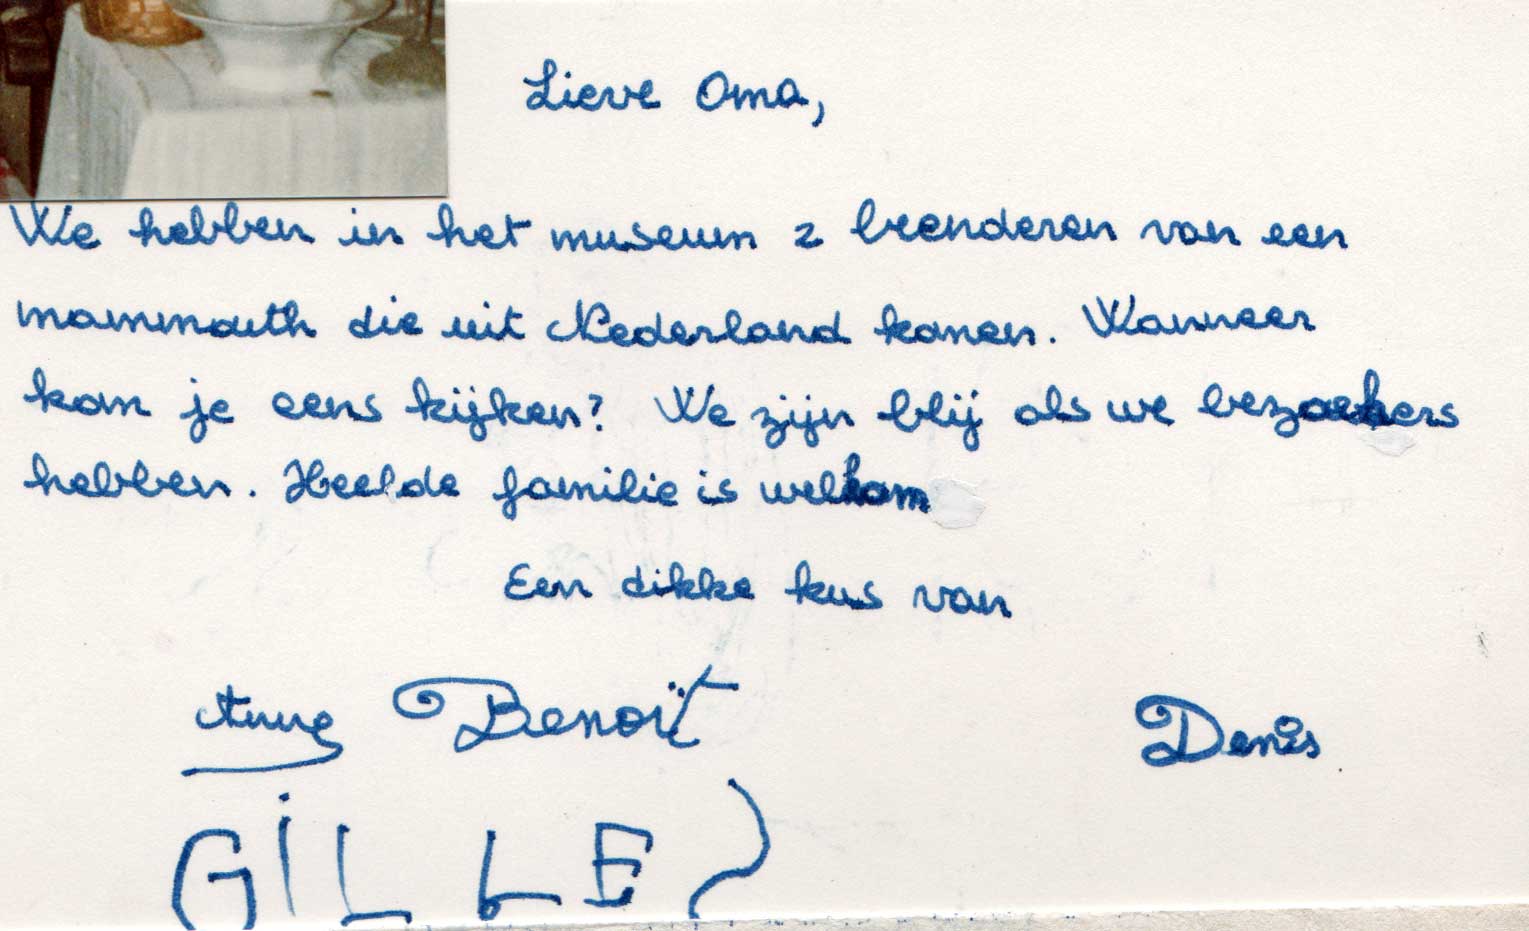 Lieve Oma,
We hebben in het museum 2 beenderen van een
mammouth die uit Nederland komen. Wanneer
kom je eens kijken? We zijn blij als we bezoekers
hebben. Heelde familie is welkom
Een dikke kus van
Anne Benoït Denis
GiLLES